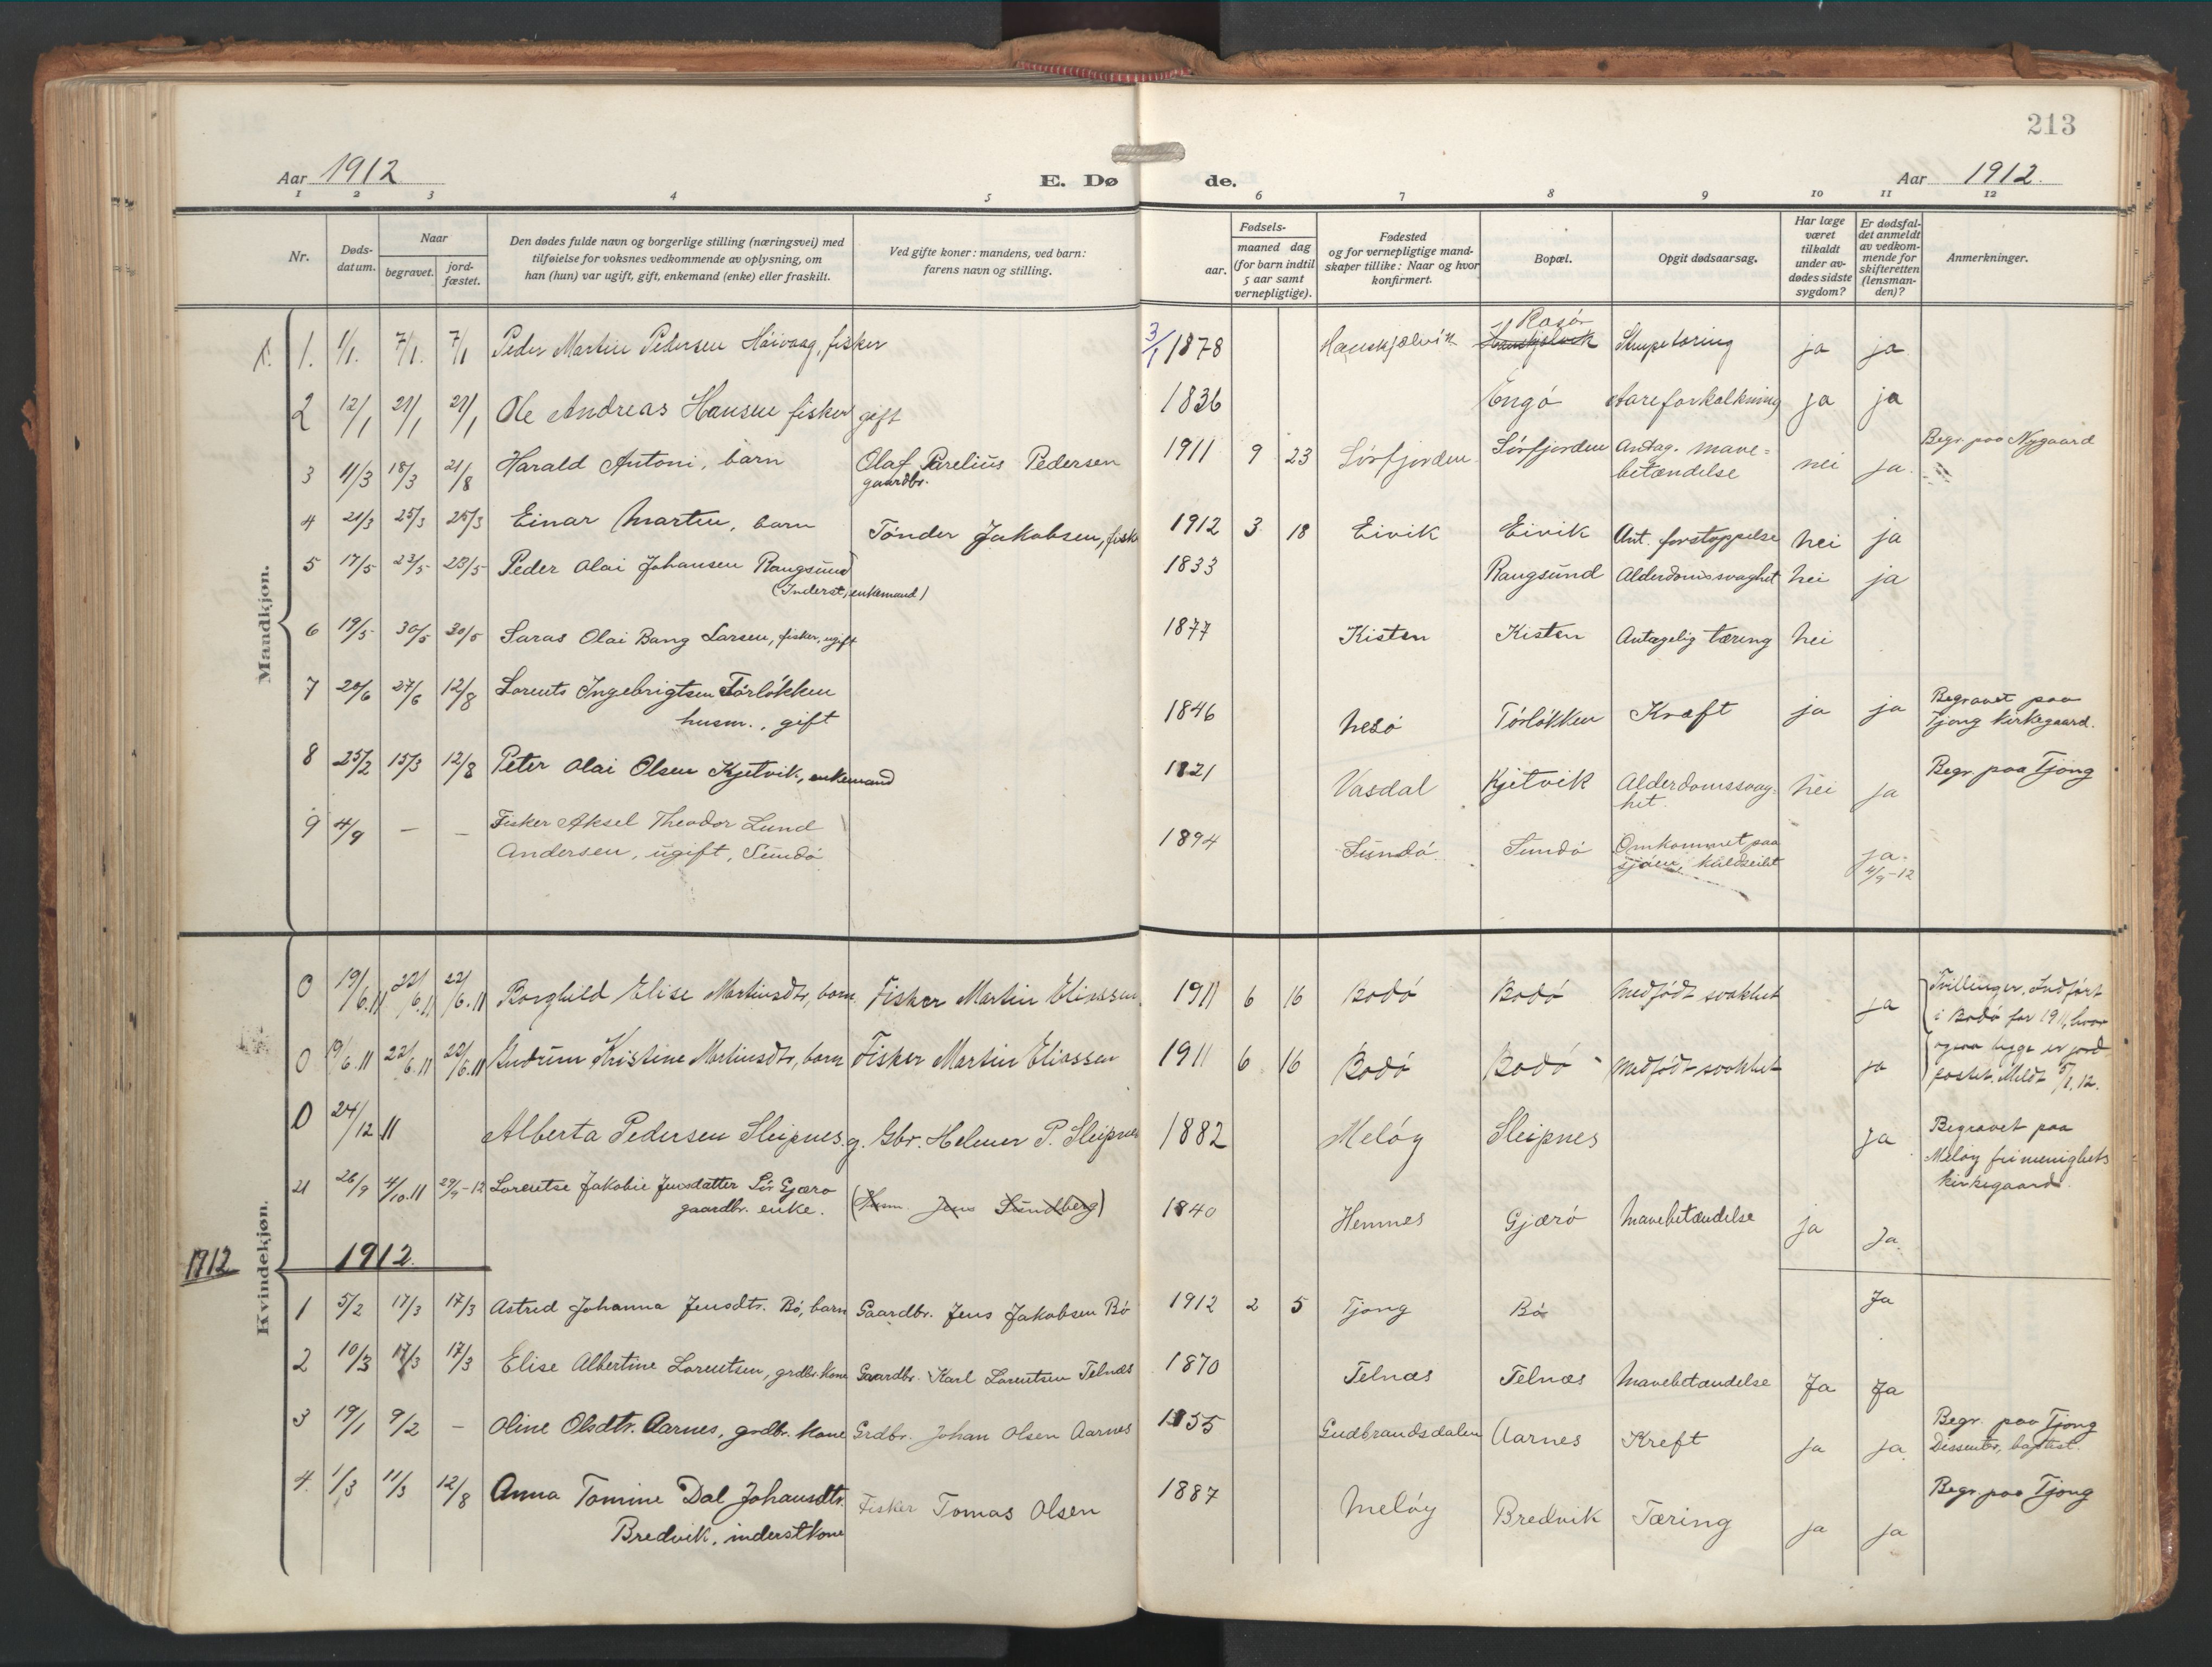 213
Aar 1912 E. Dø de. Aar 1912.
1 2 3 4 5 6 7 8 9 10 11 12
Nr.
Døds-
datum.
Naar
begravet.
jord-
fæstet.
Den dødes fulde navn og borgerlige stilling (næringsvei) med
tilføielse for voksnes vedkommende av oplysning, om
han (hun) var ugift, gift, enkemand (enke) eller fraskilt.
Ved gifte koner: mandens, ved barn:
farens navn og stilling.
Fødsels-
aar.
maaned dag
(for barn indtil
5 aar samt
vernepligtige).
Fødested
og for vernepligtige mand-
skaper tillike: Naar og hvor
konfirmert.
Bopæl.
Opgit dødsaarsag.
Har læge
været
tilkaldt
under av-
dødes sidste
sygdom?
Er dødsfal-
det anmeldt
av vedkom-
mende for
skifteretten
(lensman-
den)?
Anmerkninger.
Mandkjøn.
1. 1/1. 7/1. 7/1 Peder Martin Pedersen Håivaag, fisker 3/1 1878 Hanskjælvik Rasør ja ja
2 12/1 21/1 21/1 Ole Andreas Hansen fisker gift 1836 Engö Aareforkalkning ja ja
3 11/3 18/3 21/8 Harald Antoni, barn Olaf Parelius Pedersen
gaardbr. 1911 9 23 Sörfjorden Sörfjorden Antag. mave-
betændelse nei ja. Begr. paa Nygaard
4 21/3 25/3 25/3 Einar Martin, barn Tönder Jakobsen, fisk 1912 3 18 Eivik Eivik Ant. forstoppelse nei ja
5 17/5 23/5 23/5 Peder Olai Johansen Rangsund
(Inderst, enkemand) 1833 Rangsund Alderdomssvaghet nei ja
6 19/5 30/5 30/5 Saras Olai Bang Larsen, fisker, ugift 1877 Kisten Kisten Antagelig tæring nei
7 20/6 27/6 12/8 Lorents Ingebrigtsen Törlökken
husm., gift 1846 Nesö Törlökken Kræft ja ja Begravet paa
Tjong kirkegaard.
8 25/2 15/3 12/8 Peter Olai Olsen Kjetvik, enkemand 1821 Vasdal Kjetvik Alderdomssvag-
het. nei ja Begr. paa Tjong
9 4/9 — — Fisker Aksel Theodor Lund
Andersen, ugift, Sundö 1894 Sundö. Sundö Omkommet paa
sjöen, kuldseilet ja.
4/9-12
Kvindekjøn.
0 19/6.11 22/6.11 22/6.11 Borghild Elise Martinsdtr, barn. Fisker Martin Eliassen. 1911 6 16 Bodö Bodö Medfödt svakhet ja Tvillinger. Indfört
i Bodö for 1911, hvor
0 19/6.11 22/6.11 22/6.11 Gudrun Kristine Martinsdtr, barn Fisker Martin Eliassen 1911 6 16 Bodö Bodö Medfödt svakhet ja ogsaa begge er jord-
fæstet. Meldt 5/1.12.
0 24/12 11 Alberta Pedersen Sleipnes. g. Gbr. Helmer P. Sleipnes 1882 Melöy Sleipnes ja Begravet paa
Melöy frimenighets
kirkegaard.
21 26/9 4/10.11 29/9-12 Lorentse Jakobie Jensdatter Sör Gjærø
gaardbr. enke. (Husm. Jens Sundberg) 1840 Hemnes Gjærö Mavebetændelse ja Ja.
1912 1912.
1 5/2 17/3 17/3 Astrid Johanna Jensdtr. Bö, barn Gaardbr. Jens Jakobsen Bö 1912 2 5 Tjong Bö Ja
2 10/3 17/3 17/3 Elise Albertine Lorentsen, grdbr. kone Gaardbr. Karl Lorentsen Telnæs 1870 Telnæs Telnæs Mavebetændelse Ja Ja
3 19/1 9/2 – Oline Olsdtr. Aarnes, grdbr. kone Grdbr. Johan Olsen Aarnes 1855 Gudbrandsdalen Aarnes Kreft ja ja. Begr. paa Tjong
Dissenter, baptist.
4. 1/3 11/3 12/8 Anna Tomine Dal Johansdtr.
Bredvik, inderstkone Fisker Tomas Olsen 1887 Melöy Bredvik Tæring ja ja Begr. paa Tjong